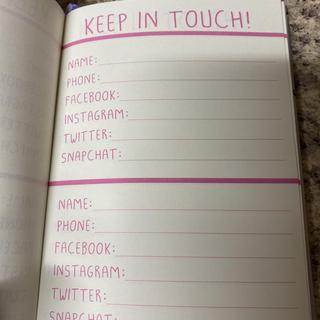 KEEP IN TOUCH!
NAME:
PHONE:
FACEBOOK:
INSTAGRAM:
TWITTER:
SNAPCHAT:
NAME:
PHONE:
FACEBOOK:
INSTAGRAM:
TWITTER:
SNAPCHAT: